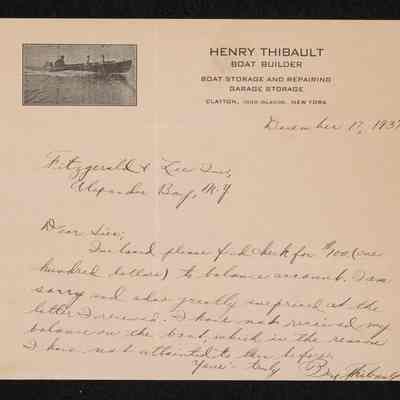 HENRY THIBAULT
BOAT BUILDER
BOAT STORAGE AND REPAIRING
GARAGE STORAGE
CLAYTON, 1000 ISLANDS, NEW YORK
December 17, 1937
Fitzgerald & Lee Inc,
Alexander Bay, N.Y
Dear Sirs;
Inclosed please find check for $100 (one
hundred dollars) to balance account. I am
sorry and also greatly surprised at the
letter I received. I have not received my
balance on the boat, which is the reason
I have not attainted to this before.
Yours truly
Thibault